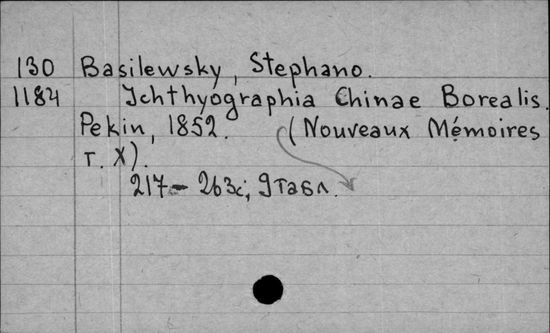 130 Basilewsky, Stephano.
1184 Ichthyographia Chinae Borealis.
Pekin, 1852. (Nouveaux Mémoires
т. X).
217-263с; 9 табл.